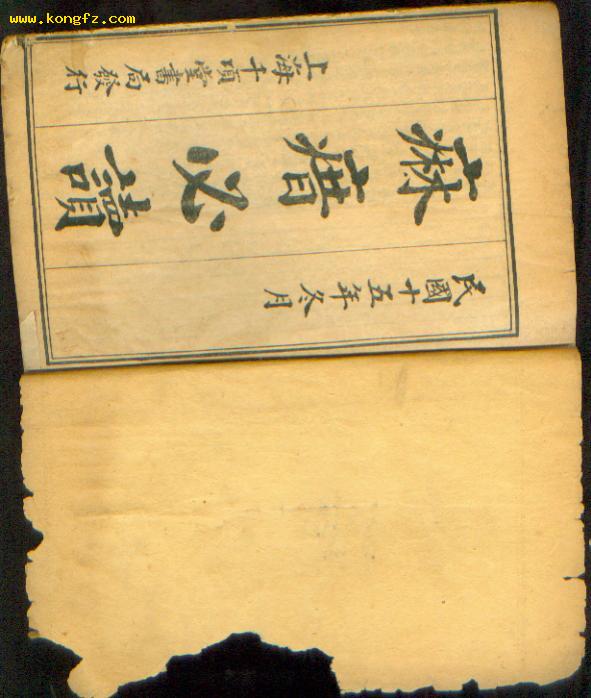 www.kongfz.com
民國十五年冬月
痳瘄必讀
上海千頃堂書局發行